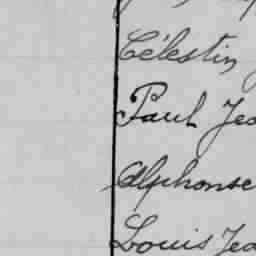 Célestin
Paul Jea
Alphonse
Louis Jea